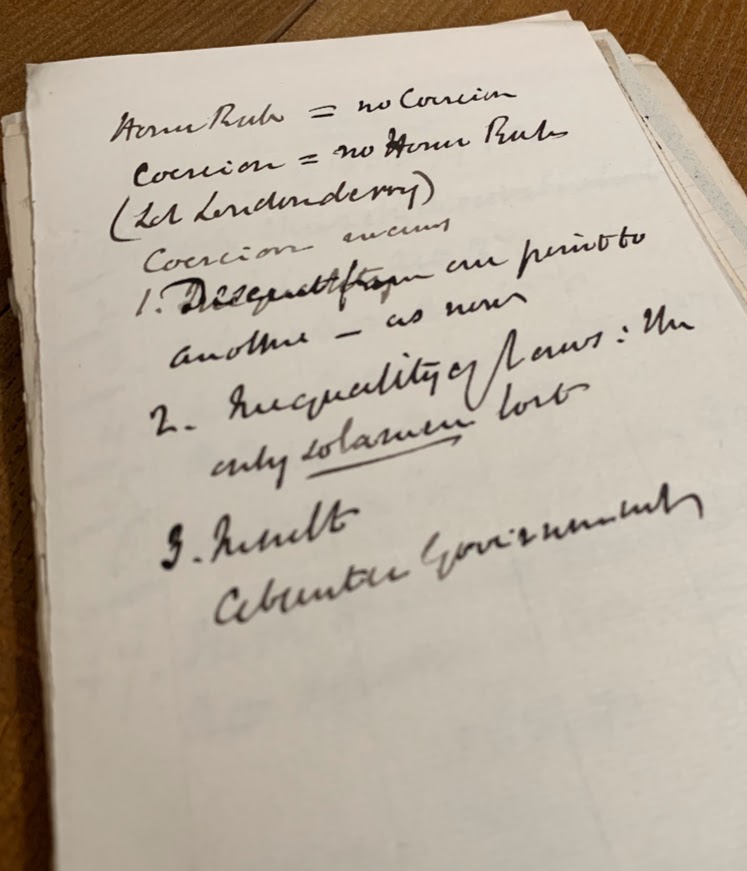 Home Rule = no Coercion
Coercion = no Home Rule
(Ld Londonderry)
Coercion means
1. from one point to
another – as never
2. Inequality of Laws: the
only solamen lost
3. Insult
Absentee Government